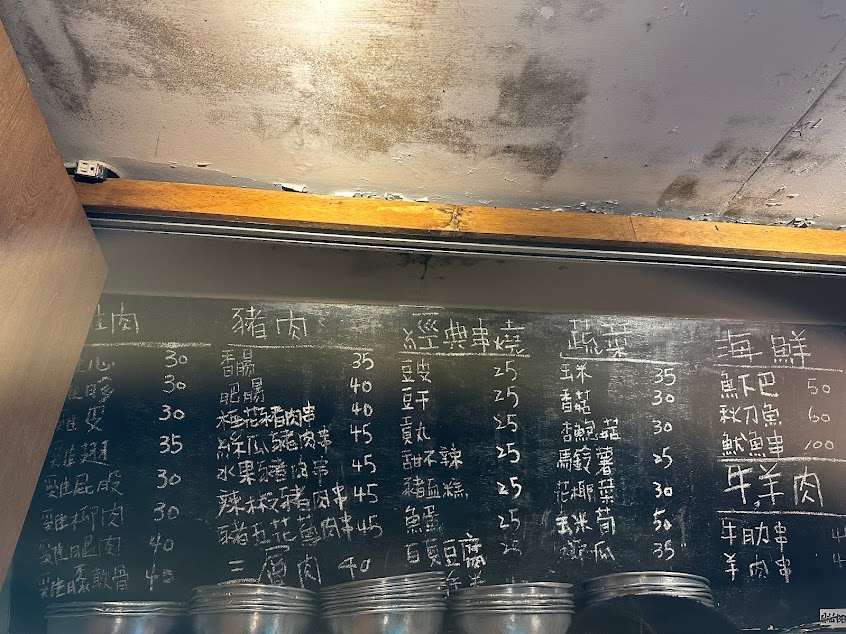 肉
心 30
雞胗 30
雞 30
雞翅 35
雞屁股 30
雞柳肉 30
雞腿肉 40
雞膝軟骨 40
豬肉
香腸 35
肥腸 40
豬肉串 40
絲瓜豬肉串 45
水果豬肉串 45
辣椒豬肉串 45
豬五花蔥肉串 45
三層肉 40
經典串燒
豆皮 25
豆干 25
貢丸 25
甜不辣 25
豬血糕 25
魚 25
百頁豆腐 25
蔬菜
玉米 35
香菇 30
杏鮑菇 30
馬鈴薯 25
花椰菜 30
玉米筍 50
瓜 35
海鮮
魚下巴 50
秋刀魚 60
魷魚串 100
牛,羊肉
牛肋串
羊肉串